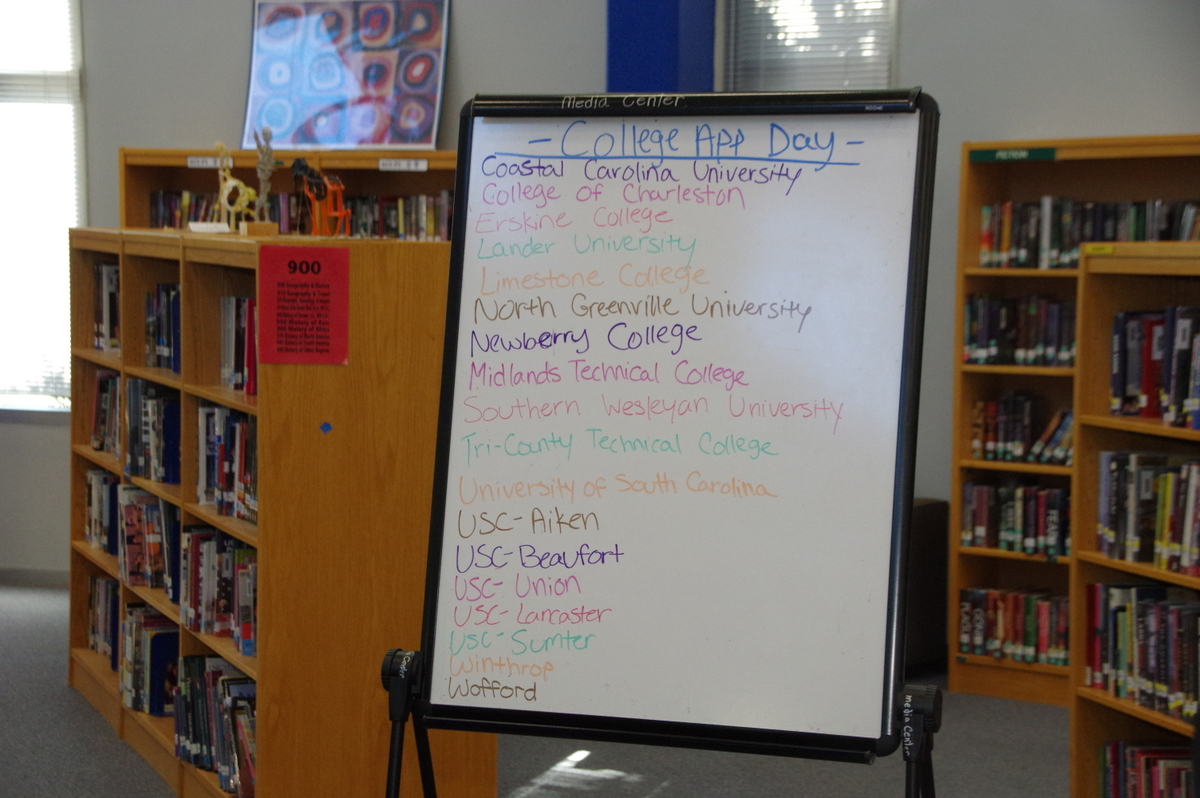 Media Center
- College App Day -
Coastal Carolina University
College of Charleston
Erskine College
Lander University
Limestone College
North Greenville University
Newberry College
Midlands Technical College
Southern Wesleyan University
Tri-County Technical College
University of South Carolina
USC-Aiken
USC-Beaufort
USC-Union
USC-Lancaster
USC-Sumter
Winthrop
Wofford
900
FICTION
Center
Media Center